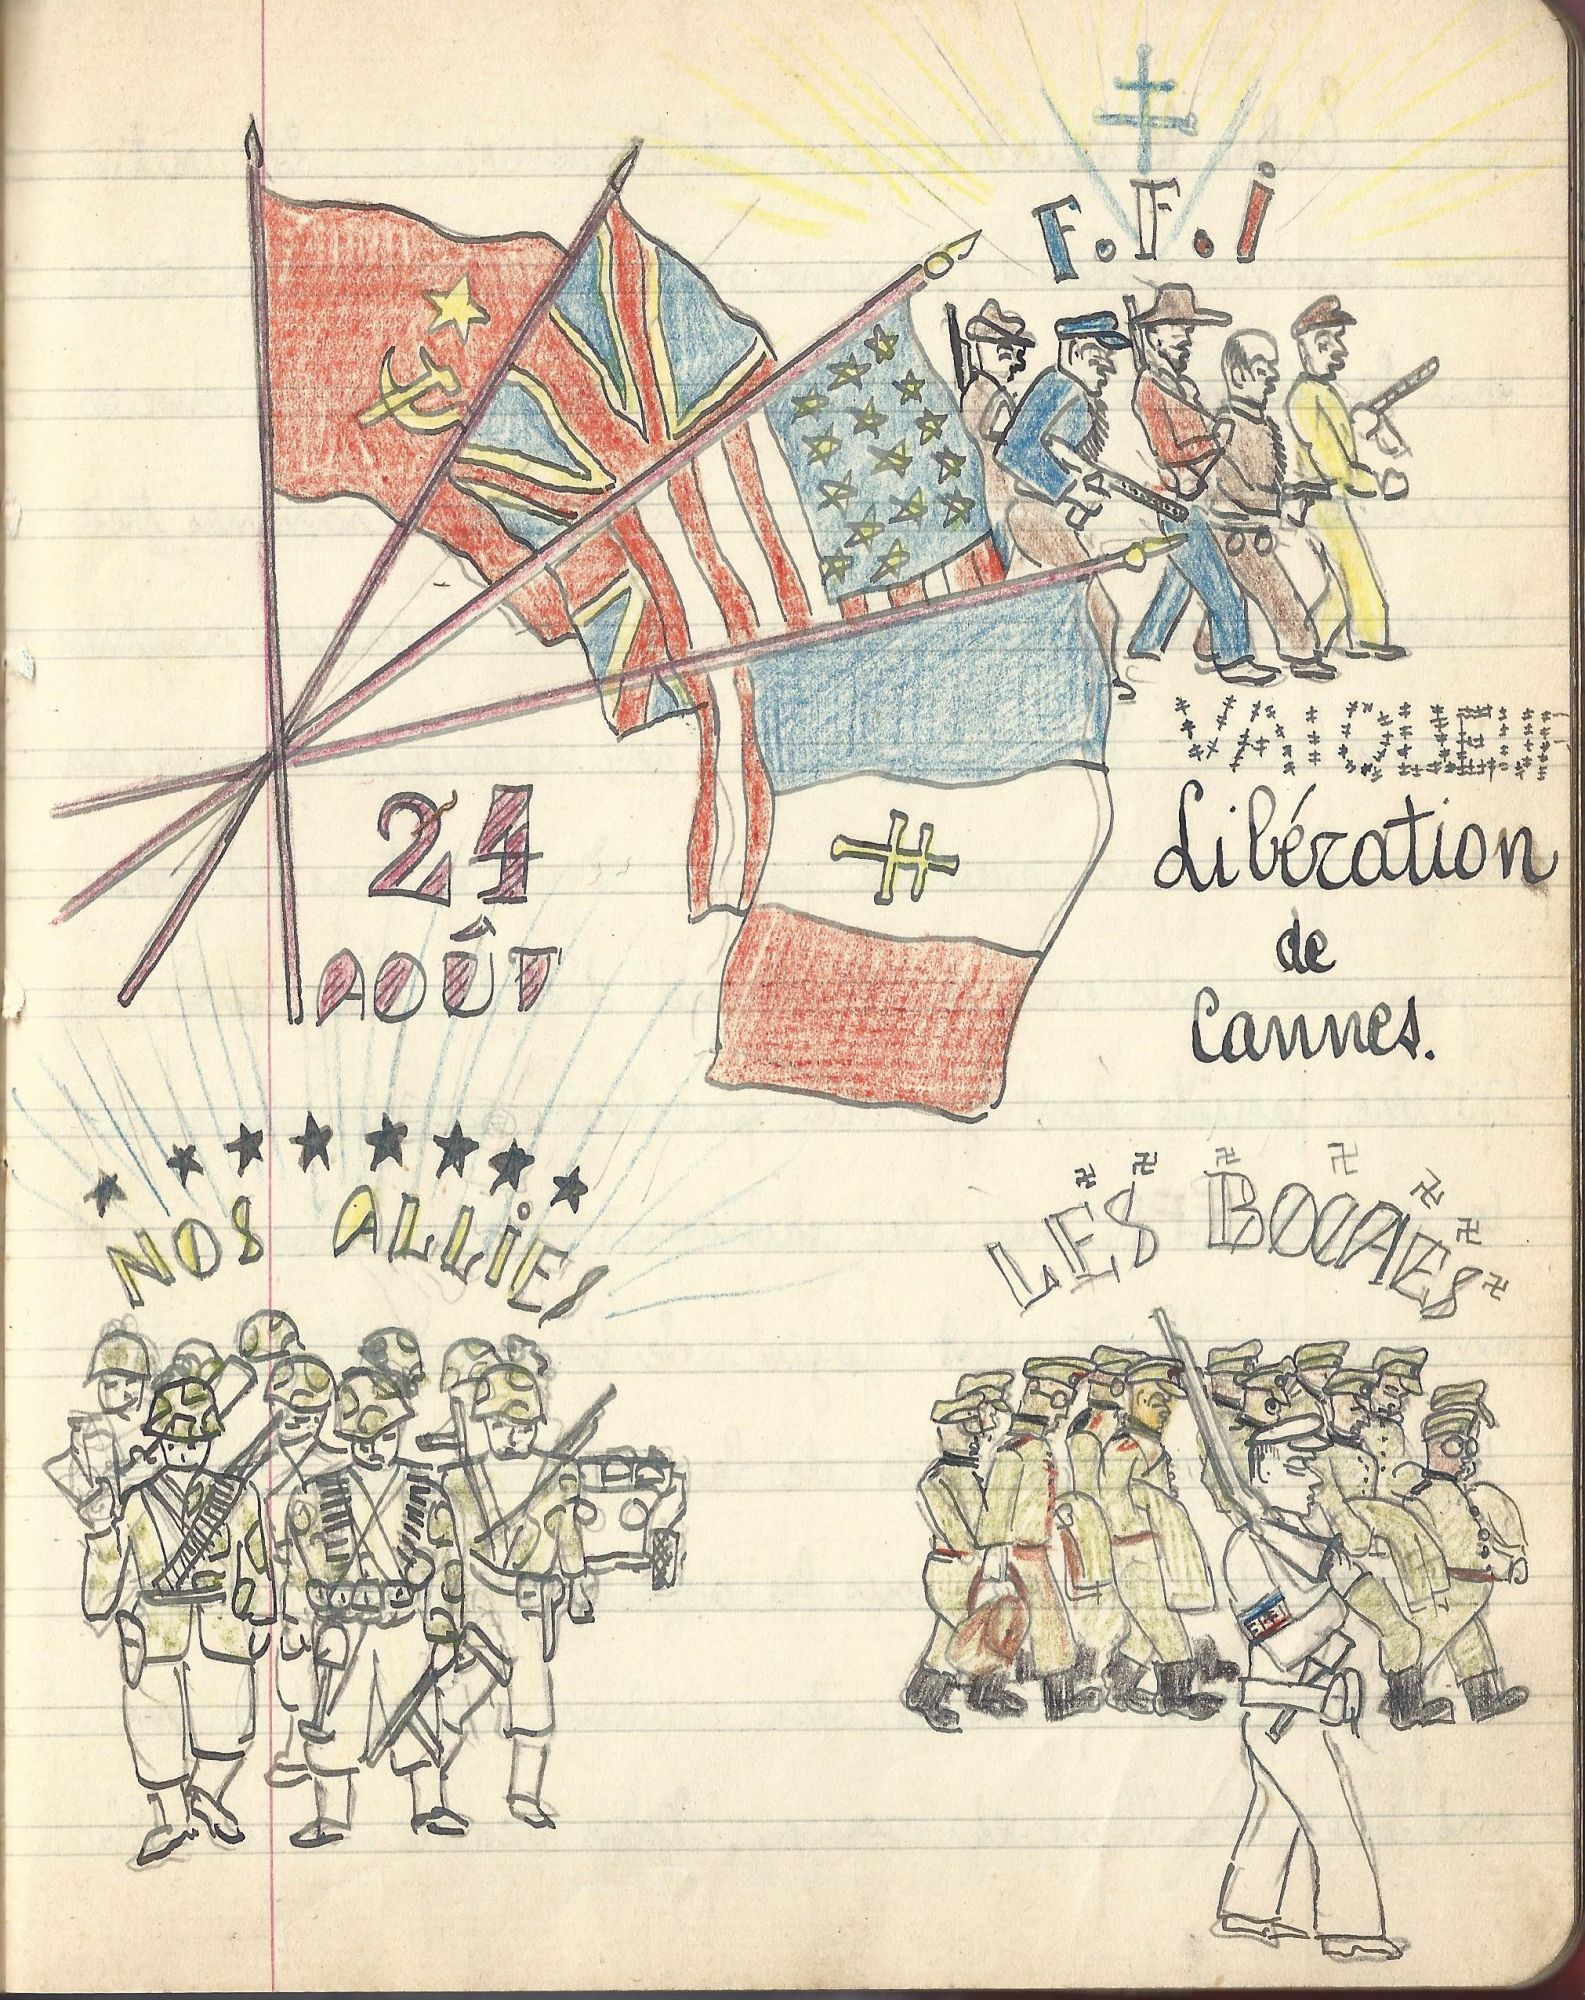 F.F.i
24
AOÛT
Libération
de
Cannes.
NOS ALLiES
LES BOCHES